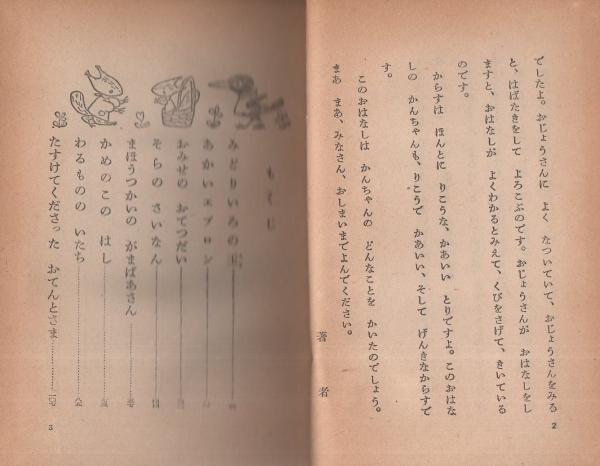 でしたよ。おじょうさんに よく なついていて、おじょうさんをみる
と、はばたきをして よろこぶのです。おじょうさんが おはなしをし
ますと、おはなしが よくわかるとみえて、くびをさげて、きいている
のです。
からすは ほんとに りこうな、かあいい とりですよ。このおはな
しの かんちゃんも、りこうで かあいい、そして げんきなからすで
す。
このおはなしは かんちゃんの どんなことを かいたのでしょう。
まあ まあ、みなさん、おしまいまでよんでください。
著者
2
もくじ
みどりいろの玉
あかいエプロン
おみせの おてつだい
そらの さいなん
まほうつかいの がまばあさん
かめのこの はし
わるものの いたち
たすけてくださった おてんとさま
3